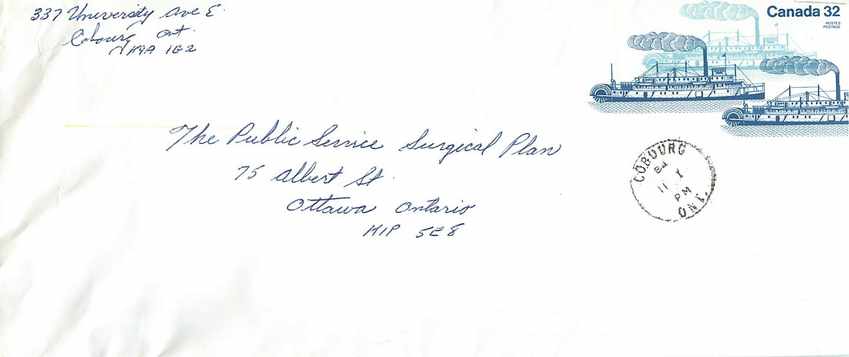 337 University Ave E.
Cobourg Ont.
K9A 1G2
Canada 32
POSTES
POSTAGE
The Public Service Surgical Plan
75 Albert St.
Ottawa Ontario
K1P 5E8
COBOURG
84
11 1
PM
ONT.